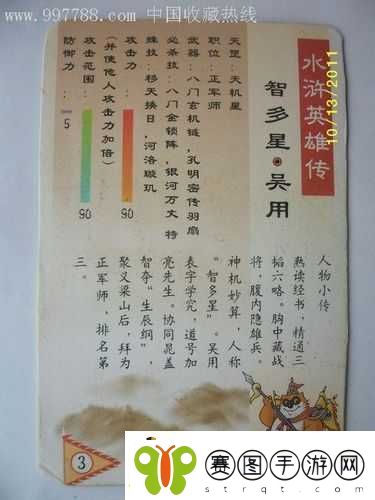 www.997788.com 中国收藏热线
水浒英雄传
10/13/2011
智多星·吴用
天罡:天机星
职位:正军师
武器:八门玄机链,孔明密传羽扇
必杀技:八门金锁阵,银河万丈 特
殊技:移天换日,河洛璇玑
攻击力: 90
(并使他人攻击力加倍)
攻击范围: 90
防御力: 5
人物小传
熟读经书,精通三
韬六略。胸中藏战
将,腹内隐雄兵。
神机妙算,人称
“智多星”。吴用
表字学究,道号加
亮先生。协同晁盖
智夺“生辰纲”,
聚义梁山后,拜为
正军师,排名第
三。
3
赛图手游网
STRQT.COM